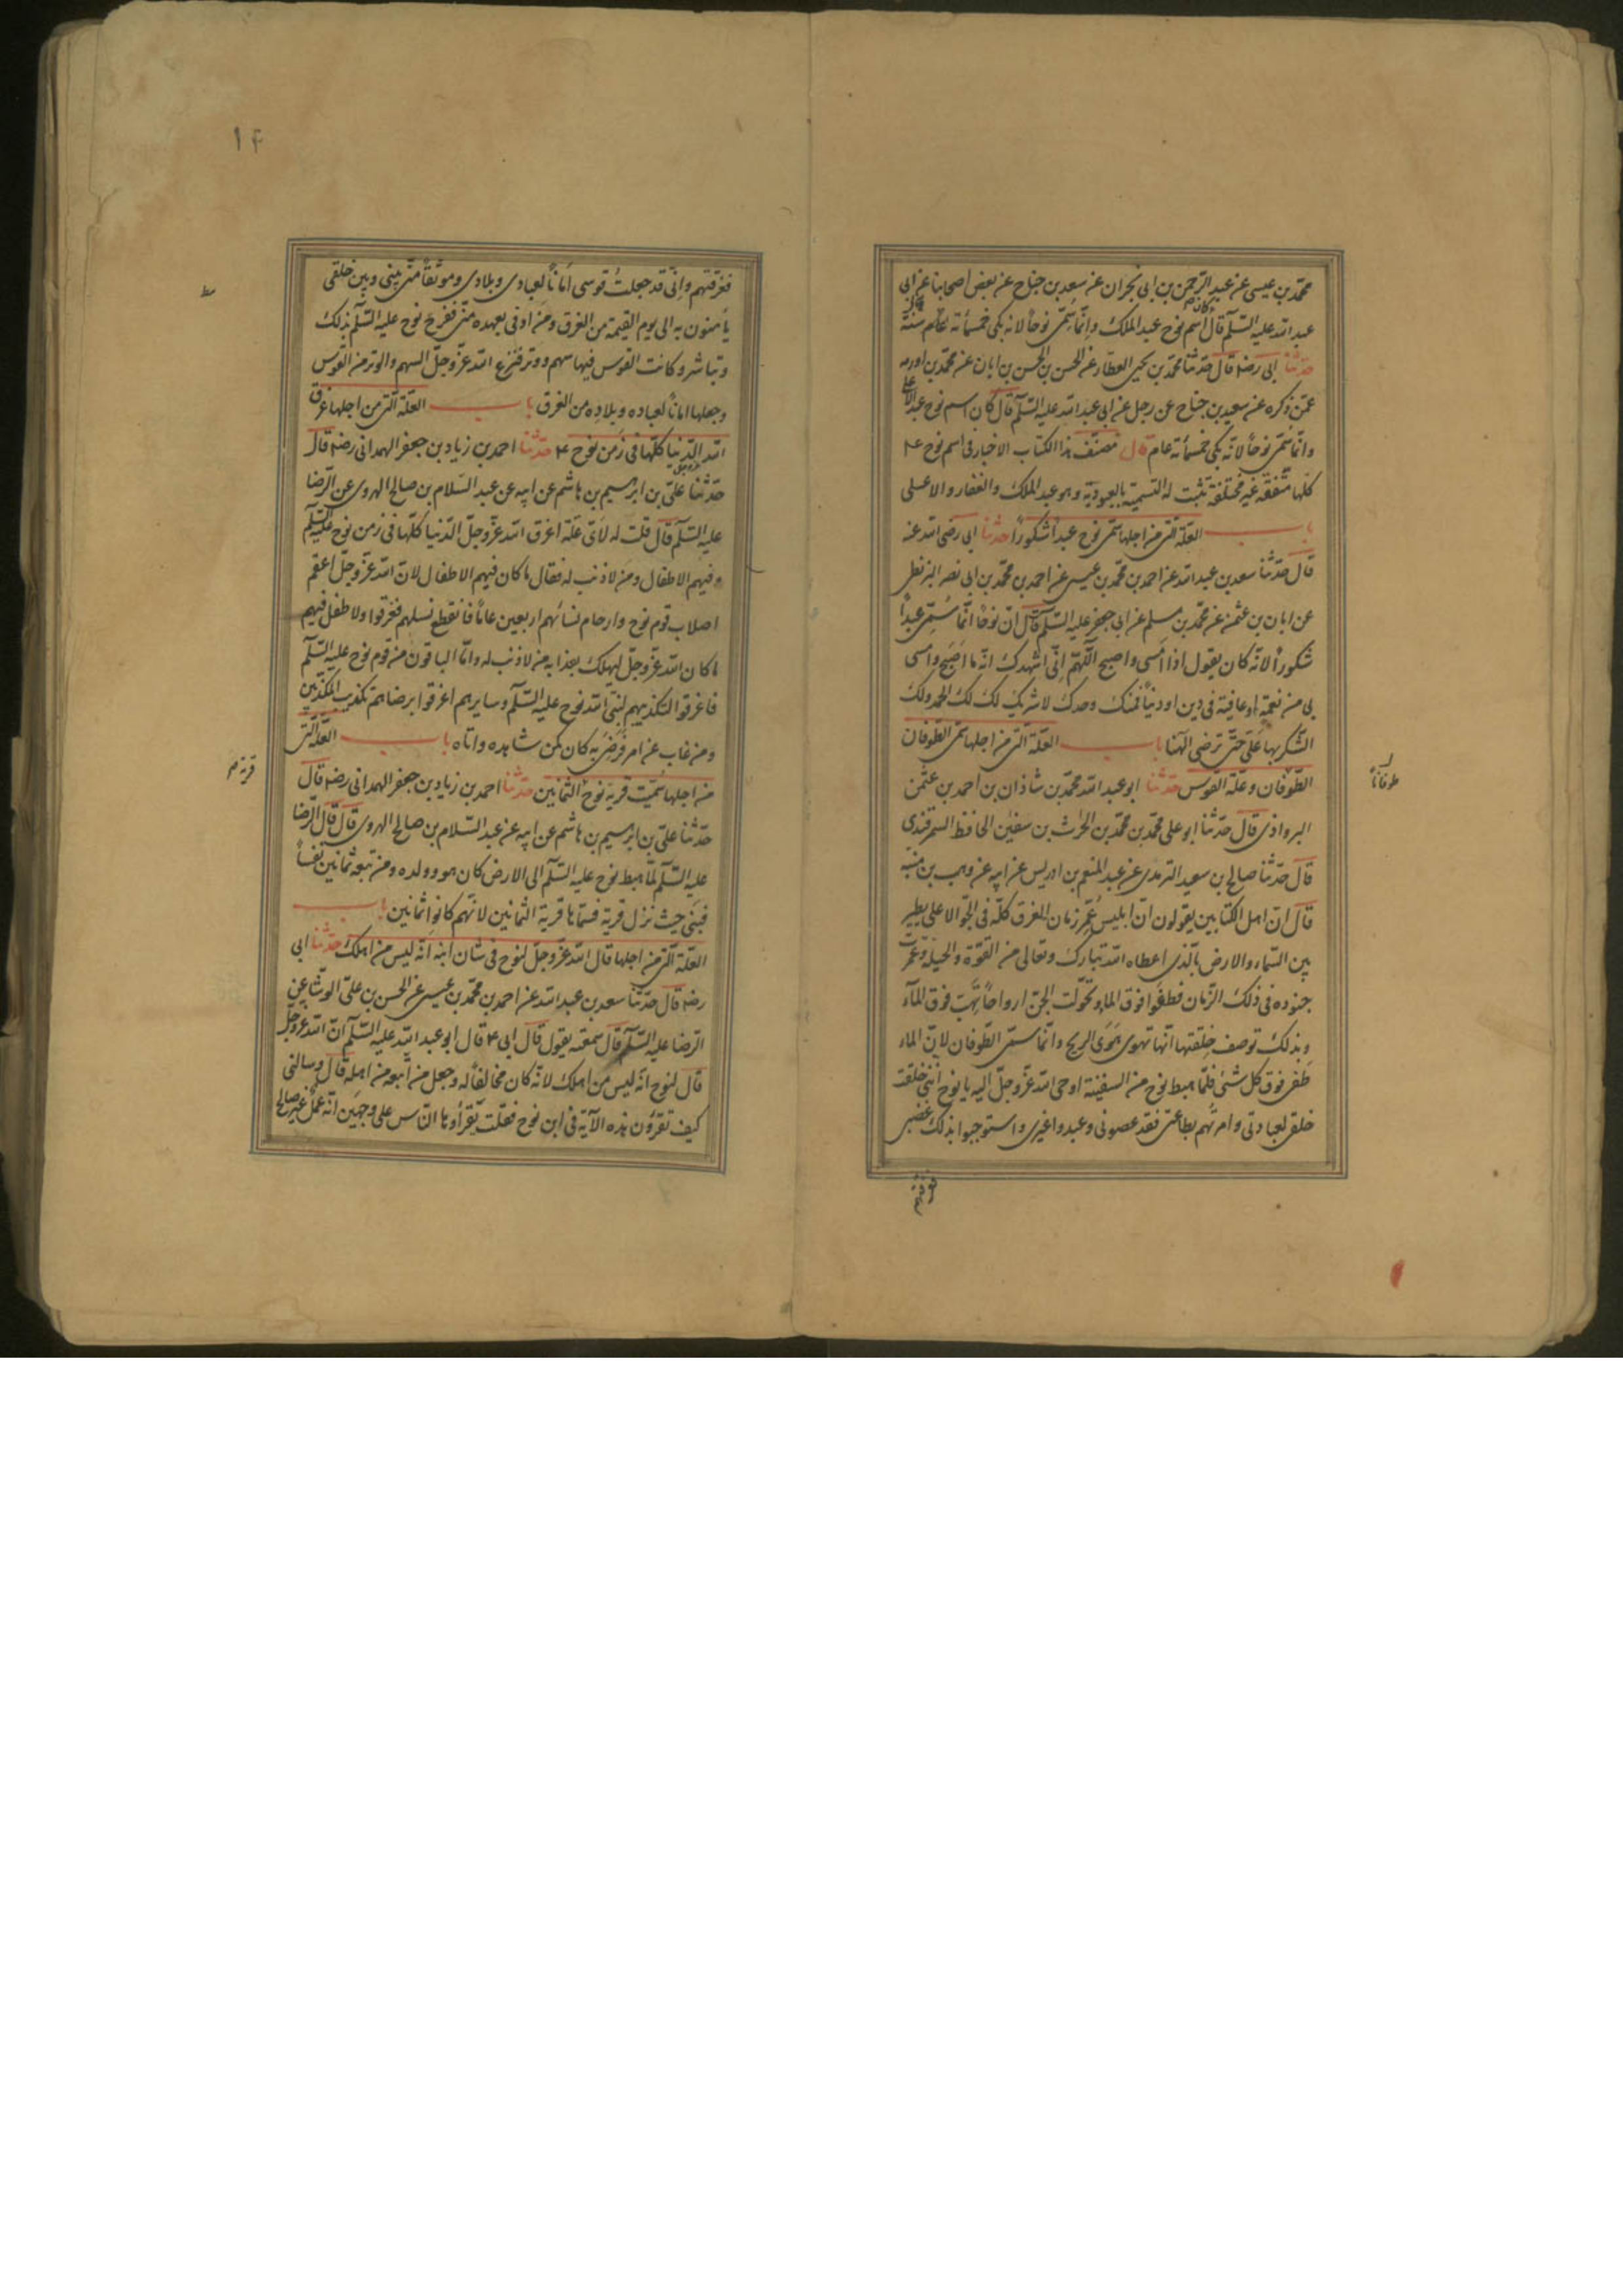 محمّد بن عيسى عن عبد الرّحمن بن ابى نجران عن سعيد بن جناح عن بعض اصحابنا عن ابى
عبد الله عليه السّلم قال كان اسم نوح عبد الملك وانّما سمّى نوحاً لانه بكى خمسمأته عام سنة
حدّثنا ابى رضه قال حدّثنا محمّد بن يحيى العطّار عن الحسن بن الحسن بن ابان عن محمّد بن اورمه
عمّن ذكره عن سعيد بن جناح عن رجل عن ابى عبد الله عليه السّلم قال كان اسم نوح عبد الاعلى
وانّما سمّى نوحاً لانّه بكى خمسمأته عام قال مصنّف هذا الكتاب الاخبار فى اسم نوح ع
كلّها متّفقة غير مختلفة تثبت له التسمية بالعبوديّة وهو عبد الملك والغفار والاعلى
باب العلّة الّتى من اجلها سمّى نوح عبداً شكوراً حدثنا ابى رضى الله عنه
قال حدّثنا سعد بن عبد الله عن احمد بن محمّد بن عيسى عن احمد بن محمّد بن ابى نصر البزنطى
عن ابان بن عثمن عن محمّد بن مسلم عن ابى جعفر عليه السّلم قال انّ نوحاً انّما سُمّى عبداً
شكوراً لانّه كان يقول اذا امسى واصبح اللّهمّ انّى اشهدك انّه ما اصبح وامسى
بى من نعمة او عافية فى دين او دنياً فمنك وحدك لا شريك لك لك الحمد ولك
الشّكر بها علىّ حتّى ترضى الهنا باب العلّة الّتى من اجلها سمّى الطّوفان
طوفاناً
الطّوفان وعلّة القوس حدّثنا ابو عبد الله محمّد بن شاذان بن احمد بن عثمن
البرواذى قال حدّثنا ابو على محمّد بن محمّد بن الحرث بن سفين الحافظ السمرقندى
قال حدّثنا صالح بن سعيد الترمذى عن عبد المنعم بن ادريس عن ابيه عن وهب بن منبه
قال انّ اهل الكتابين يقولون انّ ابليس عُمّر زمان الغرق كلّه فى الجوّ الاعلى يطير
بين السّماء والارض بالّذى اعطاه الله تبارك وتعالى من القوّة والحيلة وعمّرت
جنوده فى ذلك الزّمان فطفوا فوق الماء وتحوّلت الجنّ ارواحاً تهبّ فوق المآء
وبذلك توصف خلقتها انّها تهوى هَوِىّ الريح وانّما سمّى الطّوفان لانّ الماء
طفى فوق كل شئى فلمّا هبط نوح من السفينة اوحى الله عزّ وجلّ اليه يا نوح انّنى خلقت
خلقى لعبادتى وامرتهم بطاعتى فقد عصونى وعبدوا غيرى واستوجبوا بذلك غضبى
فغرقتهم
١٤
فغرقتهم وانّى قد جعلتُ قوسى اماناً لعبادى وبلادى وموثقاً منّى بينى وبين خلقى
يأمنون به الى يوم القيمة من الغرق ومن اوفى بعهده منّى ففرح نوح عليه السّلم بذلك
وتباشر وكانت القوس فيها سهم ووتر فنزع الله عزّ وجلّ السهم والوتر من القوس
وجعلها اماناً لعباده وبلاده من الغرق باب العلّة الّتى من اجلها غرق
الله الدّنيا كلّها فى زمن نوح ع حدّثنا احمد بن زياد بن جعفر الهمدانى رضه قال
حدّثنا علىّ بن ابرهيم بن هاشم عن ابيه عن عبد السّلام بن صالح الهروى عن الرّضا
عليه السّلم قال قلت له لاىّ علّة اغرق الله عزّ وجلّ الدّنيا كلّها فى زمن نوح عليه السّلم
وفيهم الاطفال ومن لا ذنب له فقال ما كان فيهم الاطفال لانّ الله عزّ وجلّ اعقم
اصلاب قوم نوح وارحام نسائهم اربعين عاماً فانقطع نسلهم فغرقوا ولا طفل فيهم
ما كان الله عزّ وجلّ ليهلك بعذابه من لا ذنب له وامّا الباقون من قوم نوح عليه السّلم
فاغرقوا لتكذيبهم لنبىّ الله نوح عليه السّلم وسايرهم اغرقوا برضاهم تكذيب المكذّبين
ومن غاب عن امر ورضى به كان كمن شاهده واتاه باب العلّة الّتى
قرية
من اجلها سمّيت قرية نوح الثمانين حدّثنا احمد بن زياد بن جعفر الهمدانى رضه قال
حدّثنا علىّ بن ابرهيم بن هاشم عن ابيه عن عبد السّلام بن صالح الهروى قال قال الرّضا
عليه السّلم لمّا هبط نوح عليه السّلم الى الارض كان هو وولده ومن تبعه ثمانين نفساً
فبنى حيث نزل قرية فسمّاها قرية الثمانين لانّهم كانوا ثمانين باب
العلّة الّتى من اجلها قال الله عزّ وجلّ لنوح فى شان ابنه انّه ليس من اهلك حدّثنا ابى
رضه قال حدّثنا سعد بن عبد الله عن احمد بن محمّد بن عيسى عن الحسن بن علىّ الوشّا عن
الرّضا عليه السّلم قال سمعته يقول قال ابى ع قال ابو عبد الله عليه السّلم انّ الله عزّ وجلّ
قال لنوح انّه ليس من اهلك لانّه كان مخالفاً له وجعل من اتّبعه من اهله قال وسالنى
كيف تقرؤن هذه الآية فى ابن نوح فقلت يقرأوها النّاس على وجهين انّه عملٌ غير صالح